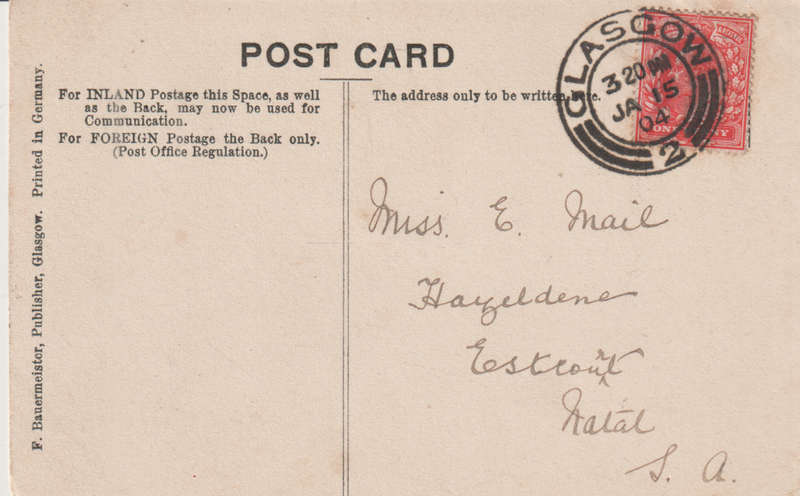 POST CARD
For INLAND Postage this Space, as well
as the Back, may now be used for
Communication.
For FOREIGN Postage the Back only.
(Post Office Regulation.)
The address only to be written here.
GLASGOW
3 20 PM
JA 15
04
2
Miss. E. Mail
Hazeldene
Estcourt
Natal
S. A.
F. Bauermeister, Publisher, Glasgow. Printed in Germany.